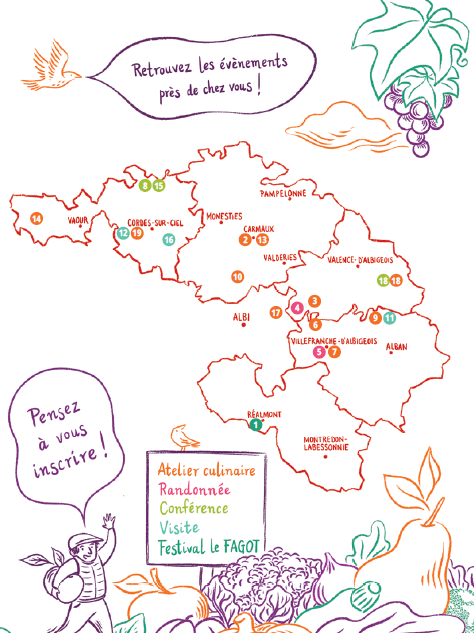 Retrouvez les évènements
près de chez vous !
PAMPELONNE
8 15
14
VAOUR
CORDES-SUR-CIEL
MONESTIÉS
12 19
16
CARMAUX
2 13
VALDERIES
VALENCE-D'ALBIGEOIS
10
18 18
ALBI
17
4
3
6
9 11
VILLEFRANCHE-D'ALBIGEOIS
5 7
ALBAN
RÉALMONT
1
MONTREDON-
LABESSONNIE
Pensez
à vous
inscrire !
Atelier culinaire
Randonnée
Conférence
Visite
Festival le FAGOT